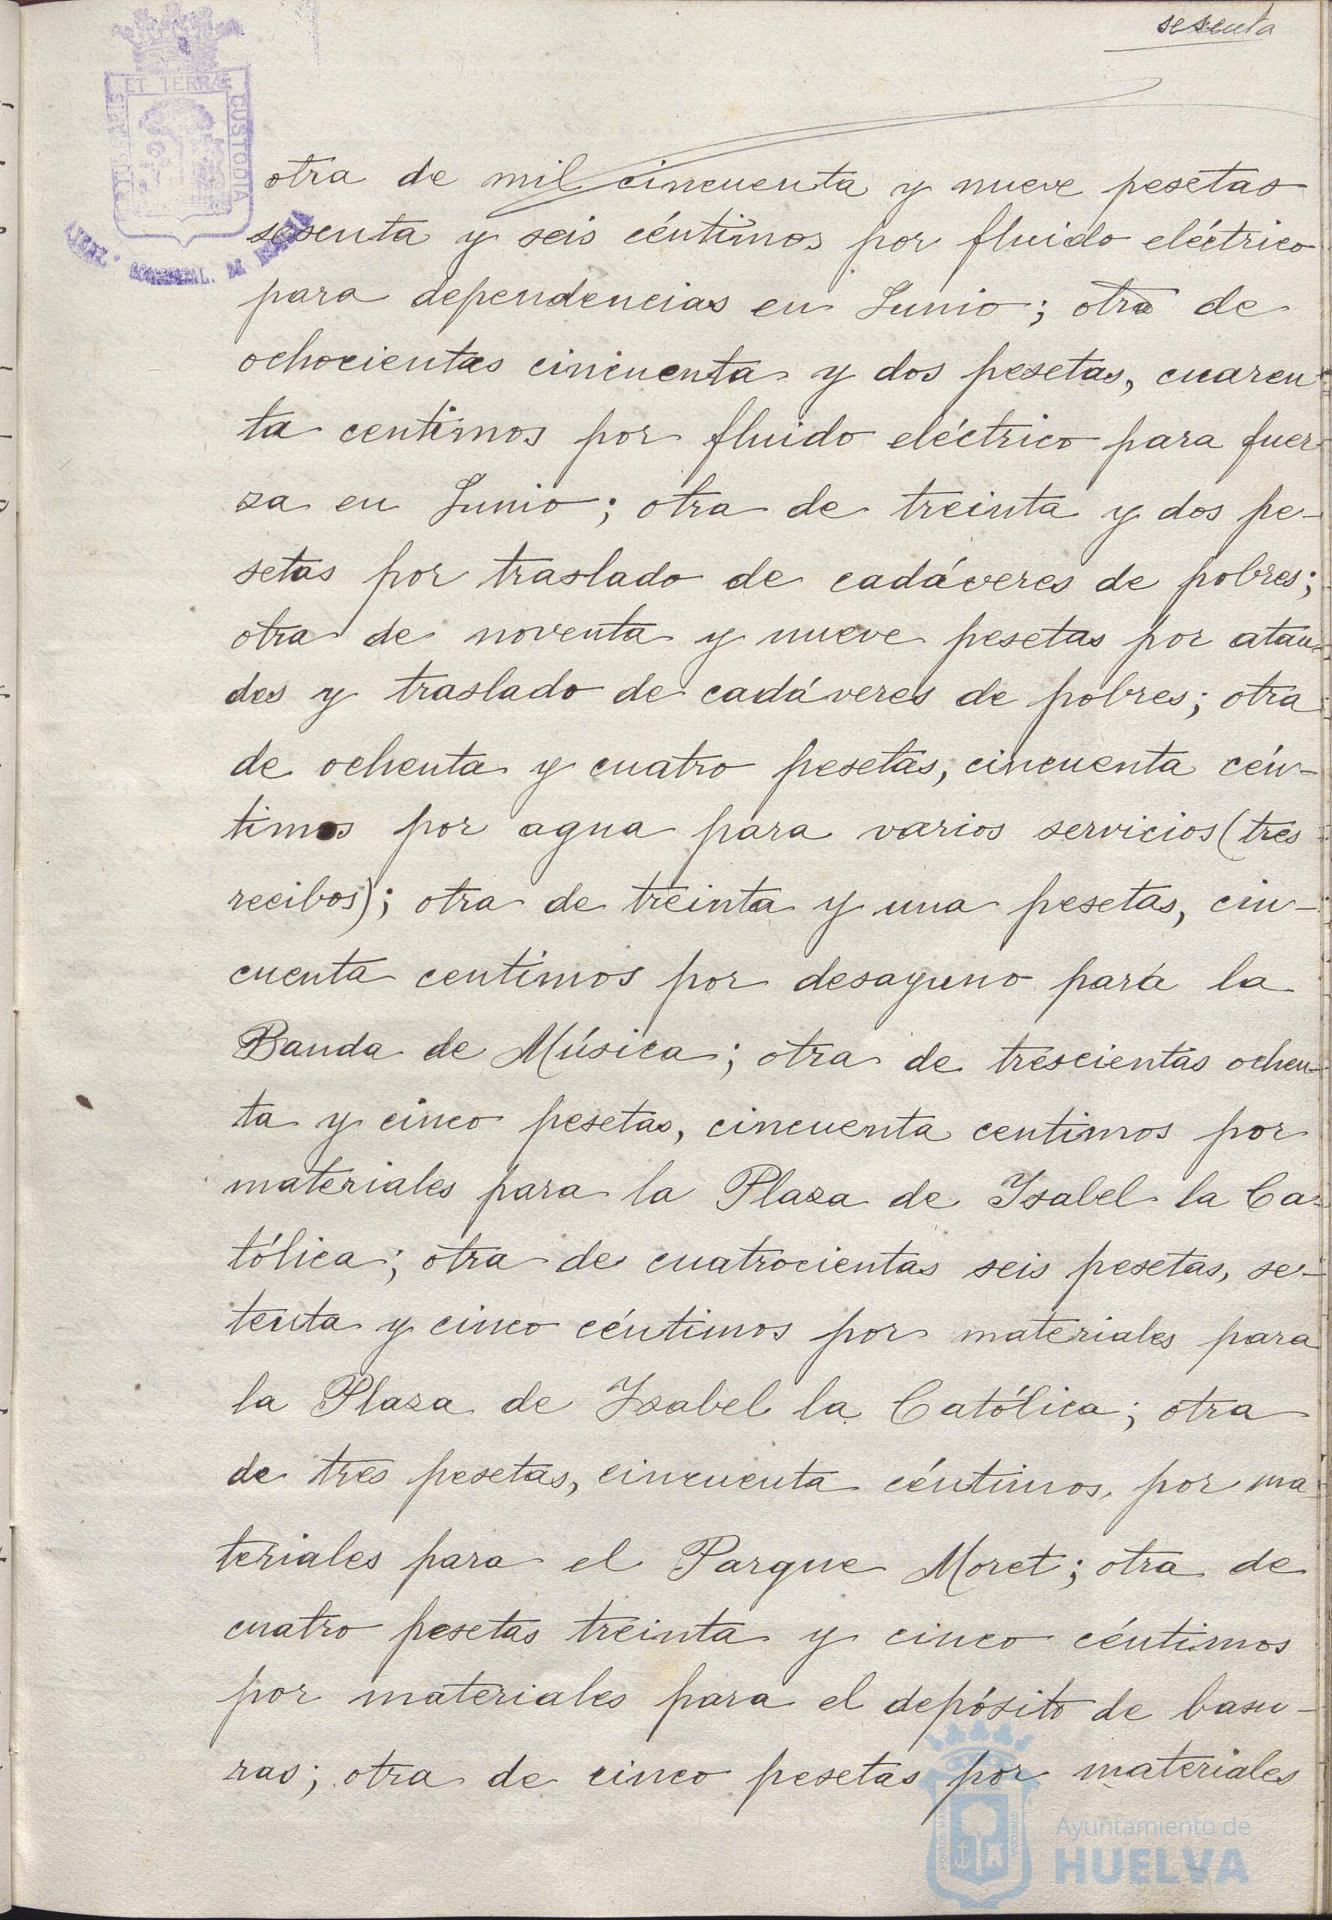 sesenta
ET TERRÆ
CUSTODIA
otra de mil cincuenta y nueve pesetas
sesenta y seis céntimos por fluido eléctrico
para dependencias en Junio; otra de
ochocientas cincuenta y dos pesetas, cuaren
ta centimos por fluido eléctrico para fuer-
za en Junio; otra de treinta y dos pe-
setas por traslado de cadáveres de pobres;
otra de noventa y nueve pesetas por atau-
des y traslado de cadáveres de pobres; otra
de ochenta y cuatro pesetas, cincuenta cén-
timos por agua para varios servicios (tres
recibos); otra de treinta y una pesetas, cin-
cuenta centimos por desayuno para la
Banda de Música; otra de trescientas ochen-
ta y cinco pesetas, cincuenta centimos por
materiales para la Plaza de Isabel la Ca-
tólica; otra de cuatrocientas seis pesetas, se-
tenta y cinco céntimos por materiales para
la Plaza de Isabel la Católica; otra
de tres pesetas, cincuenta céntimos, por ma-
teriales para el Parque Moret; otra de
cuatro pesetas treinta y cinco céntimos
por materiales para el depósito de basu-
ras; otra de cinco pesetas por materiales
Ayuntamiento de
HUELVA